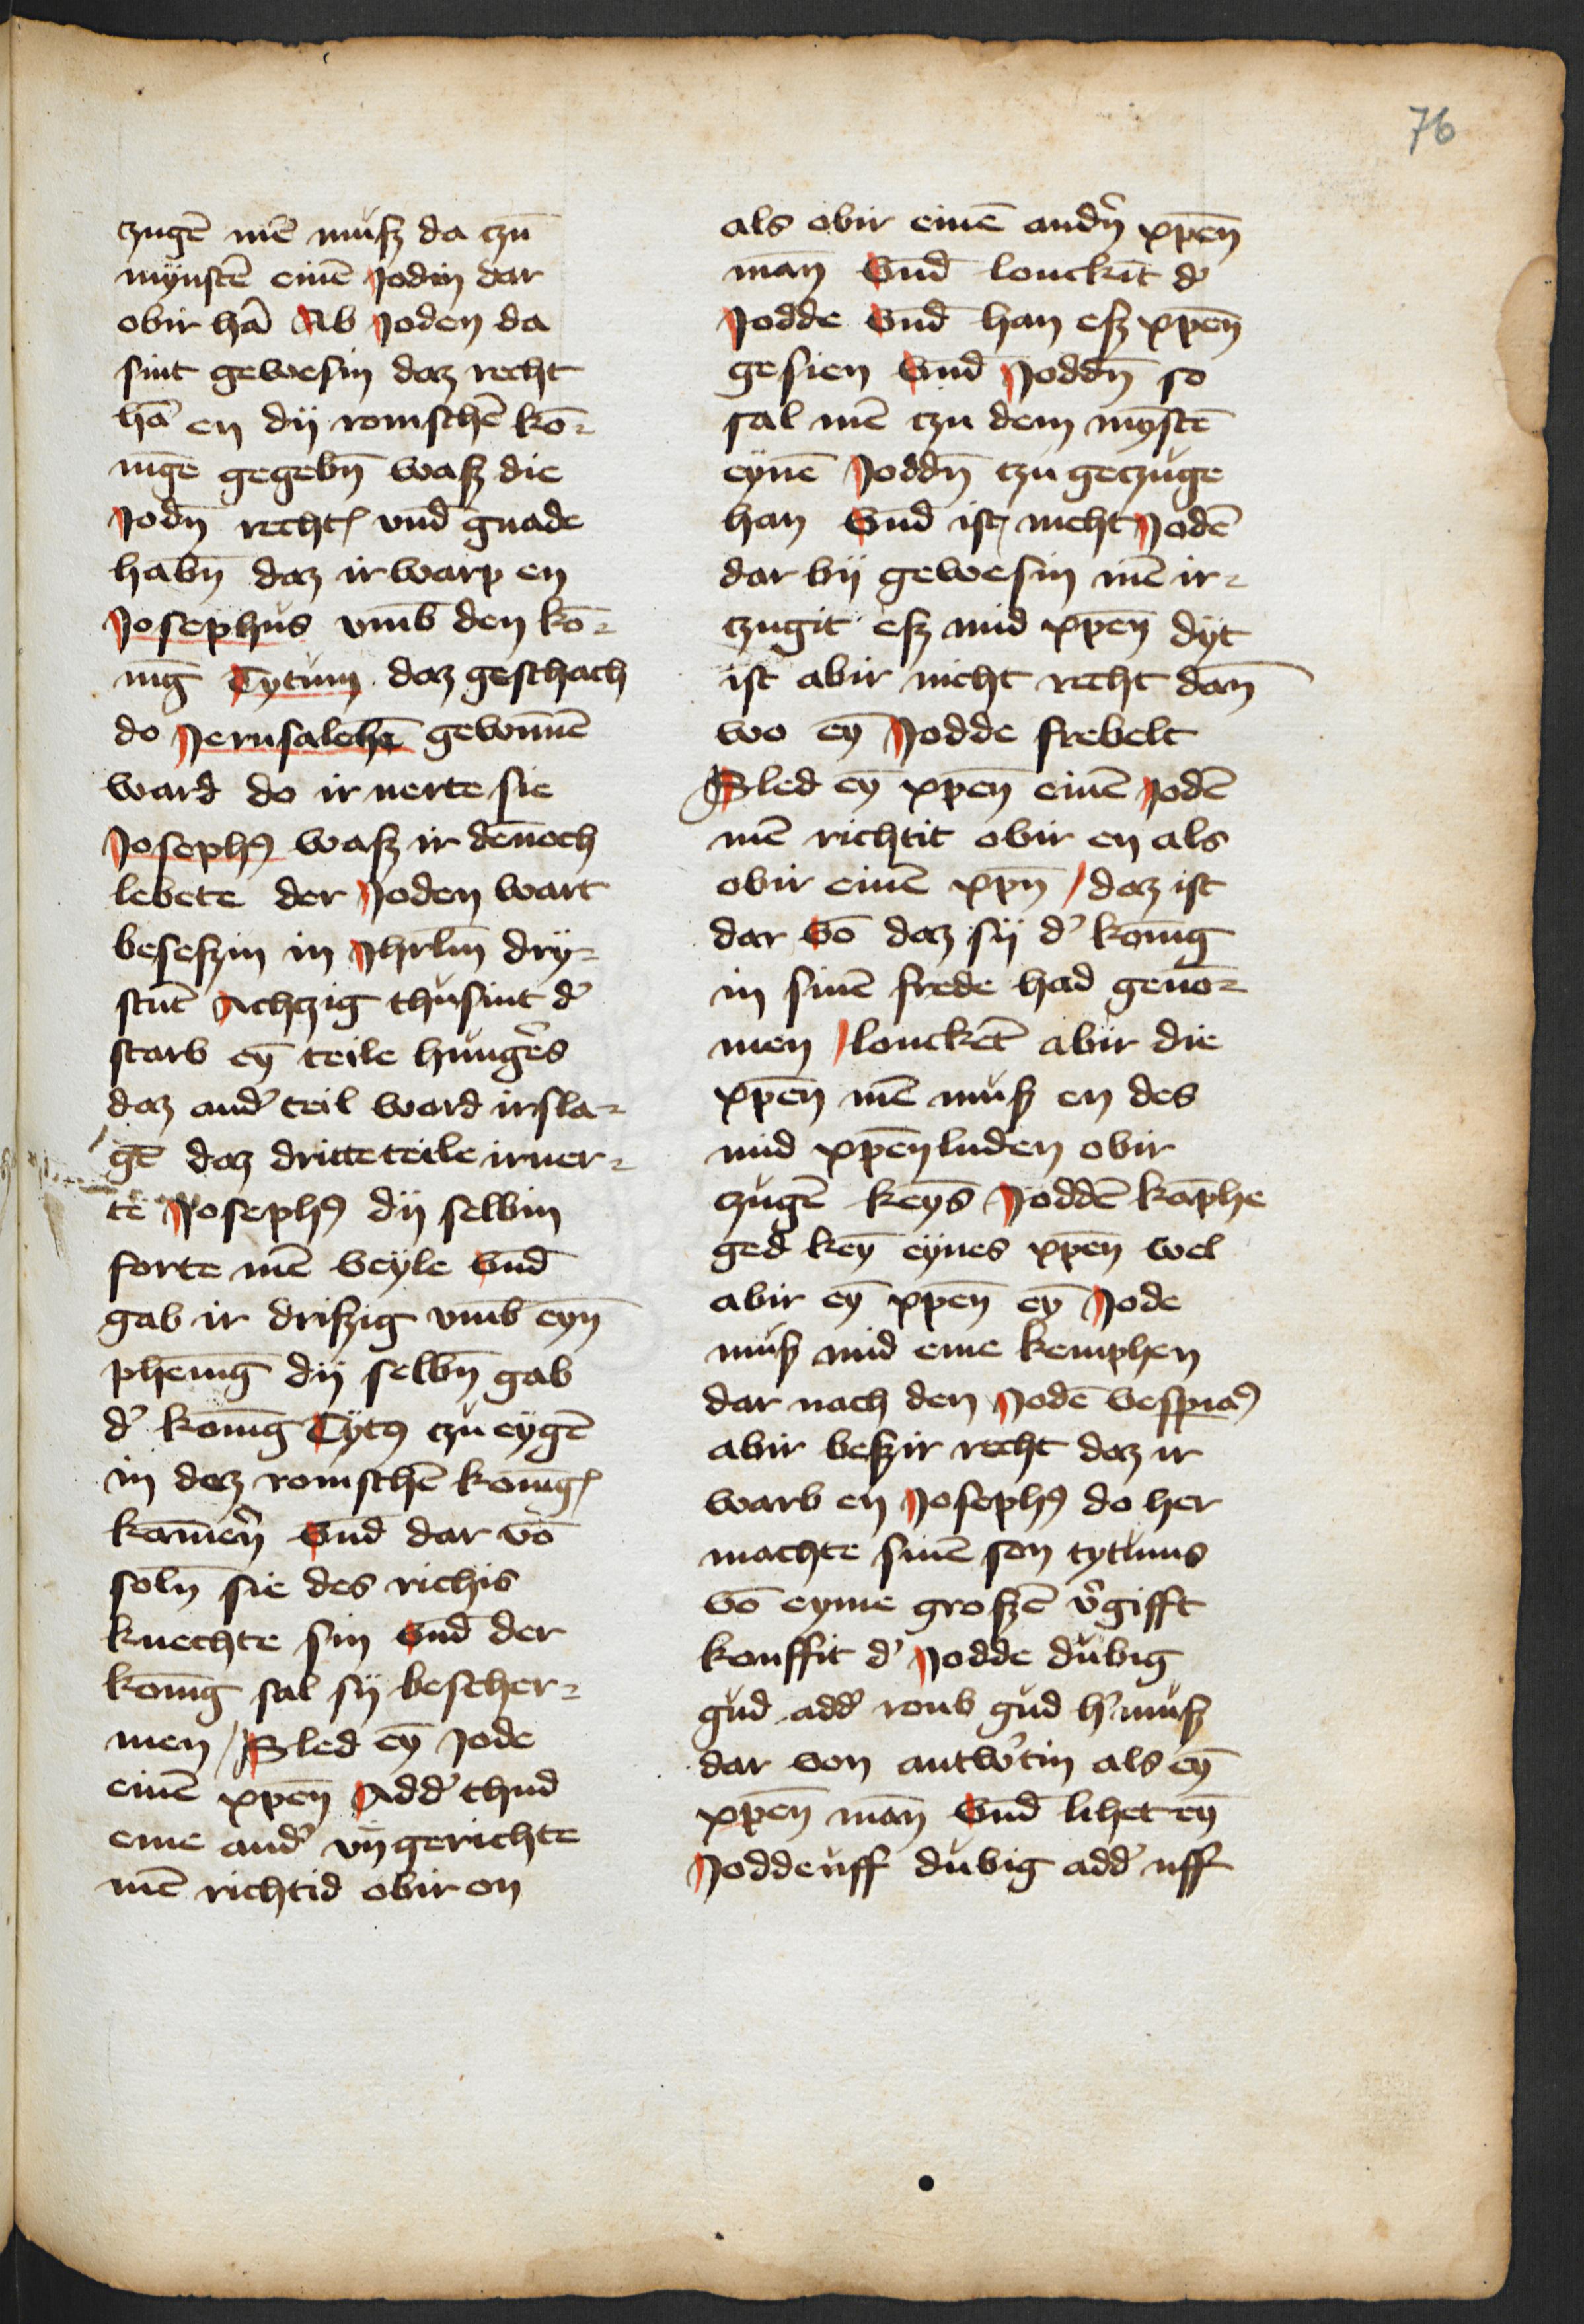 76
czugē mē muß da czu
mÿnstē einē Jodin dar
obir hā Ab Joden da
sint gewesin daz recht
hā en dij romschē kō-
nīge gegebn̄ waß die
Jodn̄ recht vnd gnade
habn̄ daz irwarp en
Josephus vmb den kō-
nīg Tytum daz geschach
do Jerusalehē gewnnē
ward do ir nerte sie
Josephꝯ waß ir dennoch
lebete der Joden wart
beseßin in Jhrl̄m drÿ-
stūt Achczig thusint d'
starb eȳ teile hung's
daz and' teil ward irsla-
gē daz dritte teile irner-
te Josephꝯ dij selbin
forte mē veyle vnd
gab ir drißig vmb eyn̄
phenīg dij selbn̄ gab
d' konīg Tytꝯ czu eygē
in daz romschē konīg
kamer̄n vnd dar vō
soln̄ sie des richis
knechte sin vnd der
konīg sal sij bescher-
men / Sled eȳ Jode
einē xp̄en Add' thud
eme and' vngerichte
mē richtid obir on
als obir einē andn̄ xp̄en
man vnd louckīt d'
Jodde vnd han eß xp̄en
gesien vnd Joddn̄ so
sal mē czu dem mȳstē
eynē Joddn̄ czu geczuge
han vnd ist nicht Jodē
dar bij gewesin mē ir-
czugit eß mid xp̄en dÿt
ist abir nicht recht dan̄
wo eȳ Jodde frebelt
Sled eȳ xp̄en einē Jodē
mē richtit obir en als
obir einē xp̄n / daz ist
dar vō daz sij d' konīg
in sinē frede had genō-
men / louckēt abir die
xp̄en mē muß en des
mid xp̄enluden obir
czugē keȳs Joddē kāphe
ged keȳ eynes xp̄en wel
abir eȳ xp̄en eȳ Jode
muß mid eme kemphen
dar nach den Jodē vespiaꝯ
abir beßir recht daz ir
warb en Josephꝯ do her
machte sinē son tytuus
vō eyme großē v'gifft
kouffit d' Jodde dubig
gud add' roub gud h' muß
dar von antw'tin als eȳ
xp̄en man̄ vnd lihet eȳ
Jodde uff dubig add' uff